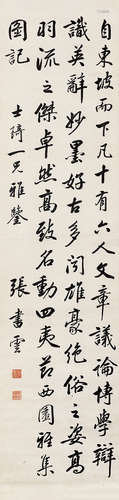 自東坡而下凡十有六人文章議論博學辯
識英辭妙墨好古多聞雄豪絕俗之姿高
羽流之傑卓然高致名動四夷節西園雅集
圖記
士琦一兄雅鑒
張書雲